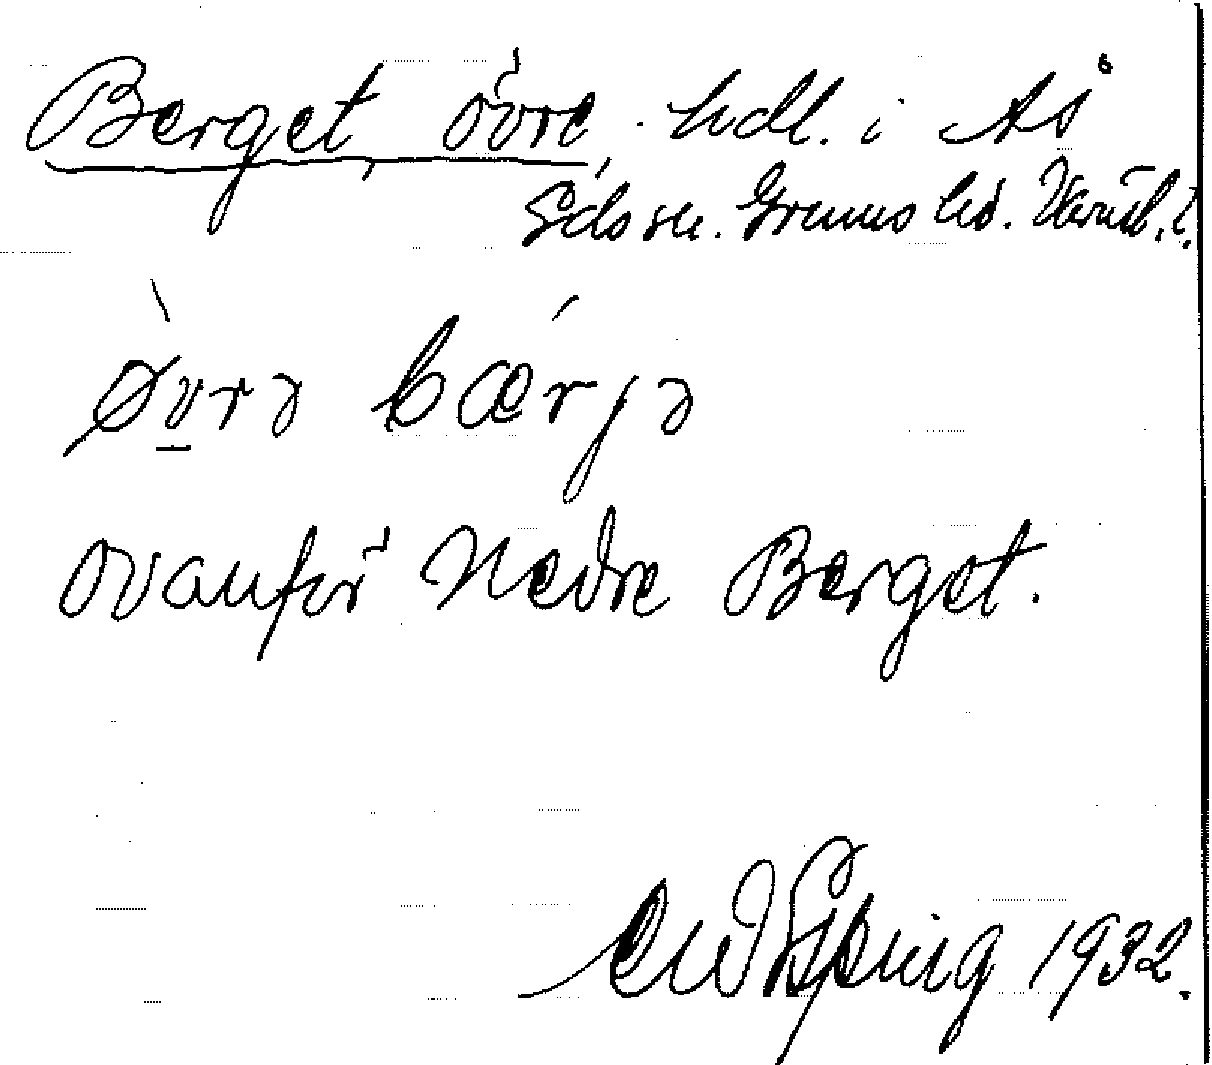 Berget, övre, hdl. i Ås
Edssn. Grums hd. Värml. l.
`øvrə ´bærjə
ovanför Nedre Berget.
1932.